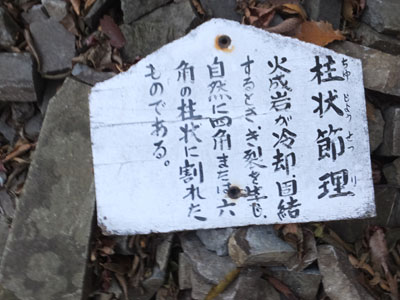 柱状節理
ちゆうじようせつり
火成岩が冷却、固結
するとき、き裂を生じ、
自然に四角または六
角の柱状に割れた
ものである。